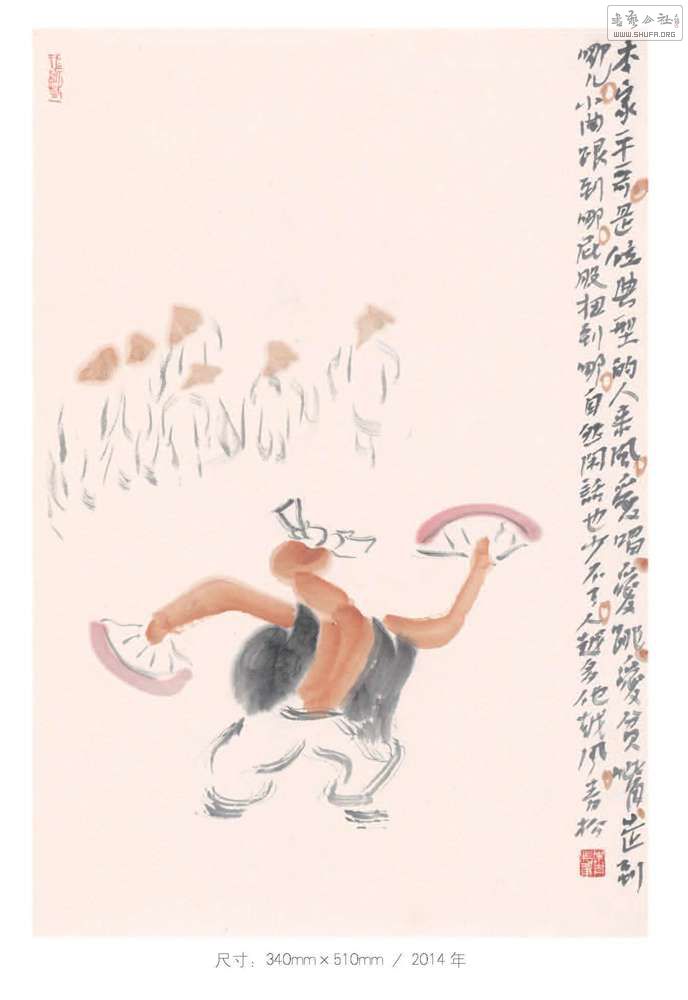 书艺公社
WWW.SHUFA.ORG
本家平哥是位典型的人来风爱唱爱跳爱贫嘴走到
哪儿小曲跟到哪屁股扭到哪自然闲話也少不了人越多他越风青松
尺寸：340mm×510mm / 2014 年